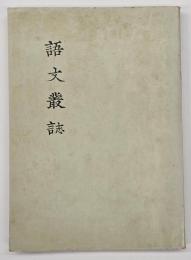 語文叢誌